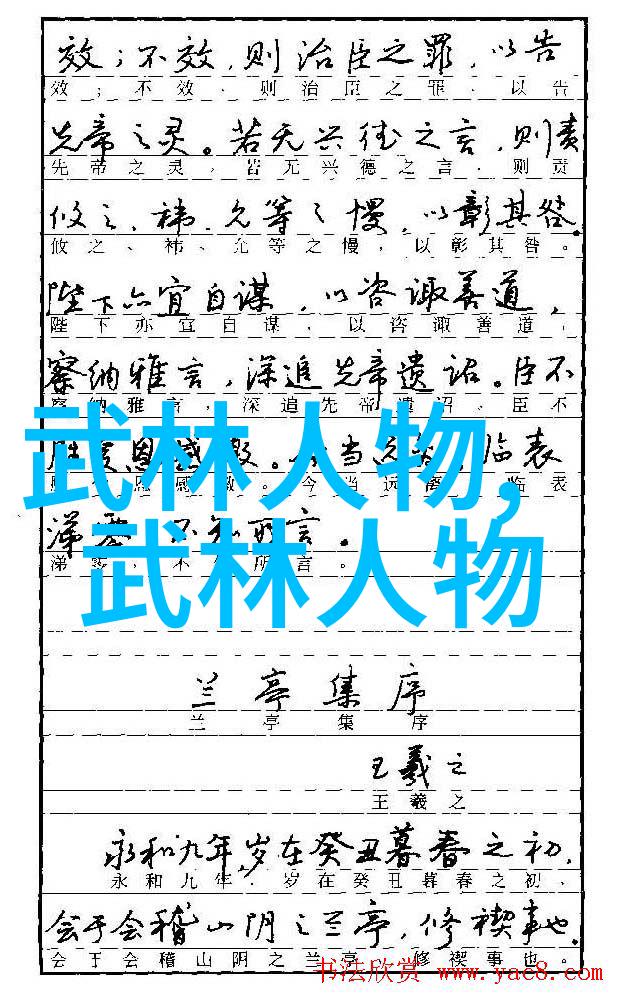 效；不效，则治臣之罪，以告
效；不效、则治臣之罪、以告
先帝之灵。若无兴德之言，则责
先帝之灵，若无兴德之言，则责
攸之、祎、允等之慢，以彰其咎。
攸之、祎、允等之慢，以彰其咎。
陛下亦宜自谋，以咨诹善道，
陛下亦宜自谋，以咨诹善道，
察纳雅言，深追先帝遗诏。臣不
察纳雅言，深追先帝遗诏。臣不
胜受恩感激。今当远离，临表
恩感激。今当远离，临表
涕零，不知所言。
涕零，不知所言。
武林人物,
武林人物
兰亭集序
兰亭集序
王羲之
王羲之
永和九年，岁在癸丑暮春之初，
永和九年．岁在癸丑暮春之初、
会于会稽山阴之兰亭，修禊事也。
会于会稽山阴之兰亭，修禊事也。
书法欣赏 www.yac8.com